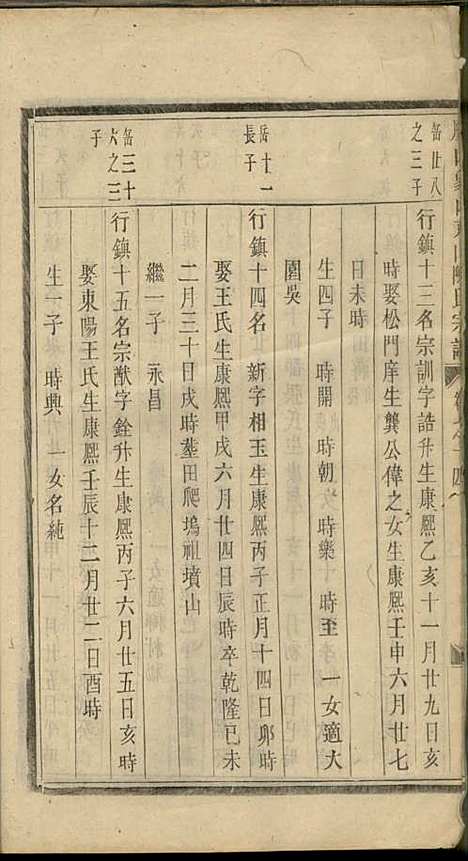 岳廿八
之三子
行鎮十三名宗訓字誥升生康熙乙亥十一月廿九日亥
時娶松門庠生龔公偉之女生康熙壬申六月廿七
日未時
生四子 時開 時朝 時樂 時至 一女適大
園吳
岳十一
長子
行鎮十四名 新字相玉生康熙丙子正月十四日卯時
娶王氏生康熙甲戌六月廿四日辰時卒乾隆己未
二月三十日戌時塟田爬塢祖墳山
繼一子 永昌
岳三十
六之三
子
行鎮十五名宗猷字銓升生康熙丙子六月廿五日亥時
娶東陽王氏生康熙壬辰十二月廿二日酉時
生一子 時興 一女名純